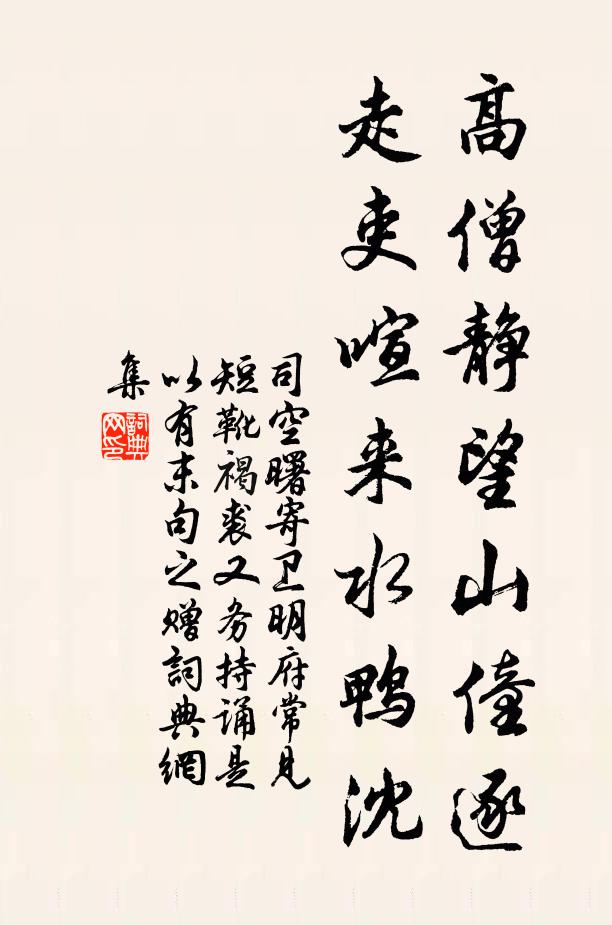 高僧静望山僮逐
走吏喧来水鸭沈
司空曙寄卫明府常见
短靴褐裘又务持诵是
以有末句之赠詞典網
集
詞典
网印